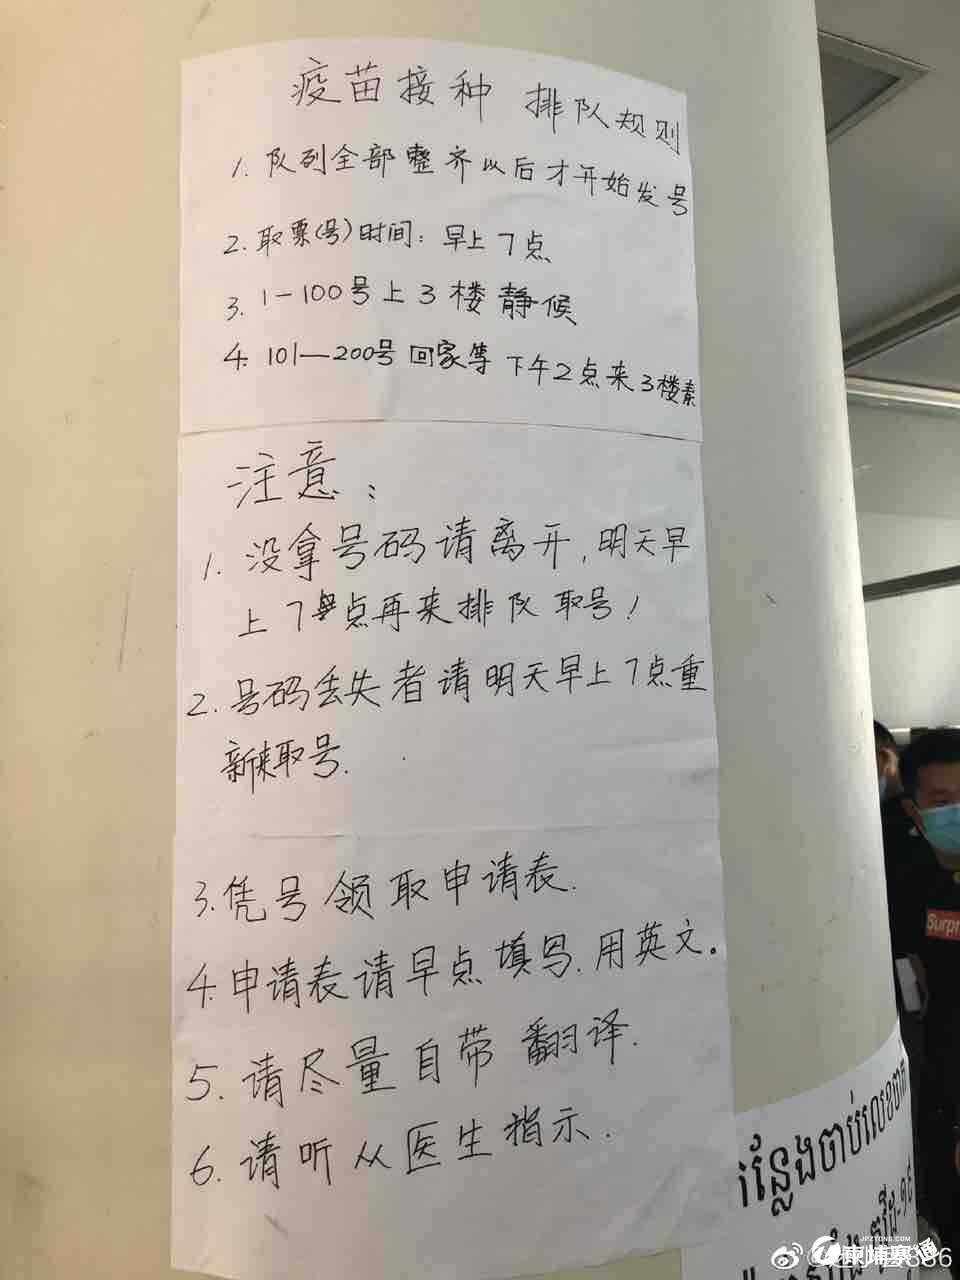 疫苗接种 排队规则
1. 队列全部整齐以后才开始发号
2. 取票(号)时间: 早上7点
3. 1-100号上3楼静候
4. 101—200号 回家等 下午2点来3楼
注意:
1. 没拿号码请离开, 明天早
上7点再来排队取号!
2. 号码丢失者请明天早上7点重
新来取号.
3. 凭号领取申请表.
4. 申请表请早点填写. 用英文。
5. 请尽量自带翻译.
6. 请听从医生指示.
កន្លែងចាប់លេខចាក់
Supr
JPZTONG.COM
柬埔寨通